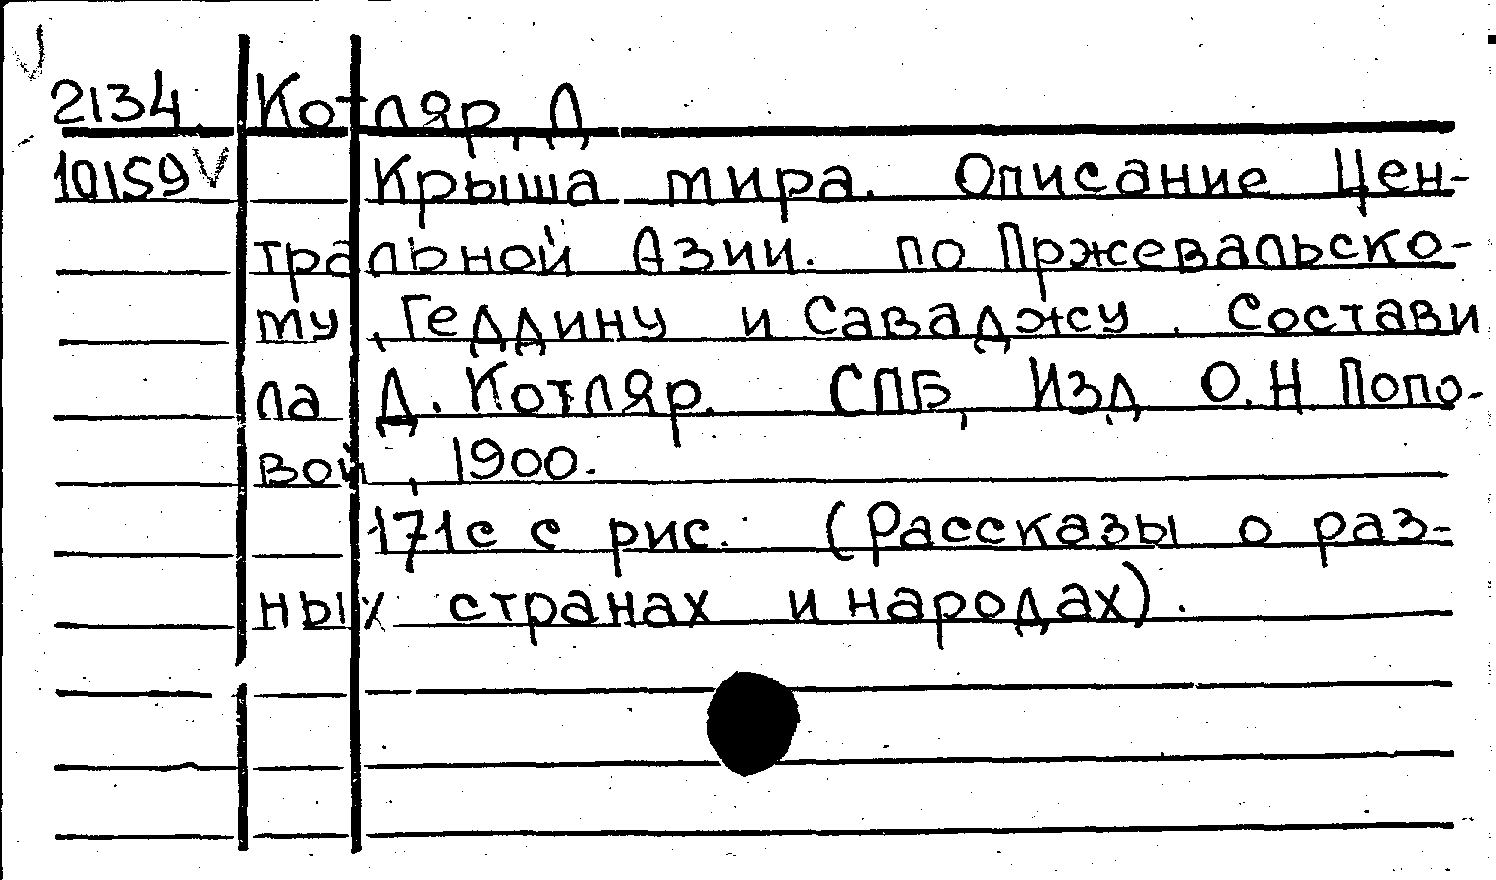 2134. Котляр, Д
10159 V Крыша мира. Описание Цен-
тральной Азии. по Пржевальско-
му, Геддину и Саваджу. Состави
ла Д. Котляр. СПБ, Изд О.Н Попо-
вой, 1900.
171с с рис. (Рассказы о раз-
ных странах и народах).